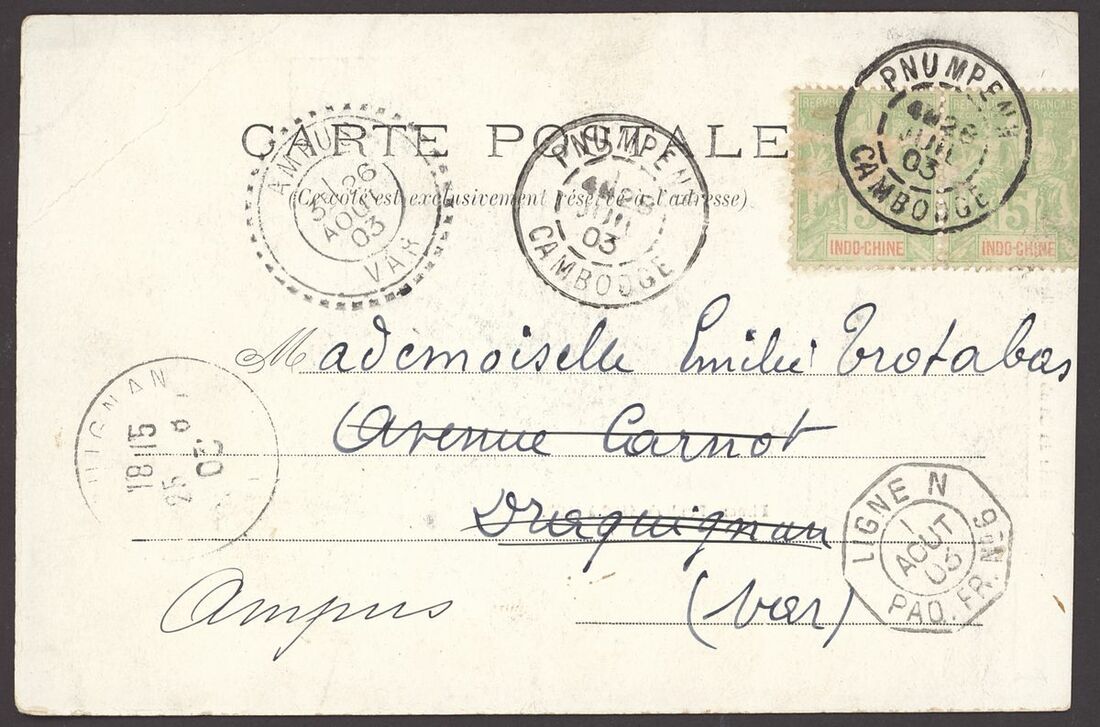 CARTE POSTALE
(Ce côté est exclusivement réservé à l'adresse)
PNUMPENH
4E 26
JUIL
03
CAMBODGE
PNUMPENH
4E 26
JUIL
03
CAMBODGE
5 5
INDO-CHINE INDO-CHINE
26
AOUT
03
VAR
Mademoiselle Emilie Trotabas
Avenue Carnot
Draguignan
Ampus (Var)
UIGNAN
18 15
25
03
LIGNE N
1
AOUT
03
PAQ. FR. Nº 6